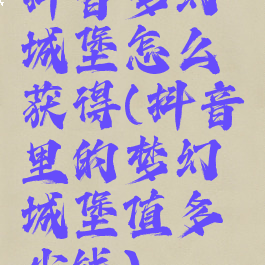 抖音梦幻
城堡怎么
获得(抖音
里的梦幻
城堡值多
少钱)